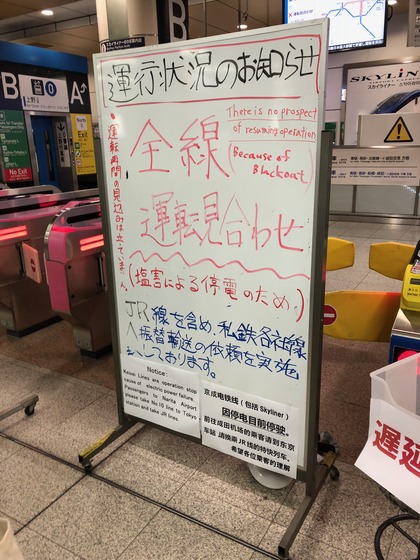 運行状況のお知らせ
There is no prospect
of resuming operation
(Because of
Blackout)
全線
運転見合わせ
●運転再開の見込みは立ていません。
(塩害による停電のため)
JR線を含め、私鉄各社線
へ振替輸送の依頼を実施
しております。
Notice:
Keisei Lines are operation stop
cause of electric power failure.
Passengers to Narita Airport
please take No.10 line to Tokyo
station and take JR lines.
京成电铁线（包括 Skyliner）
因停电目前停驶。
前往成田机场的乘客请到东京
车站 请换乘 JR 线的特快列车。
希望各位乘客的理解
B
上野
A
No Exit
B
SKYLINER
スカイライナー
遅延